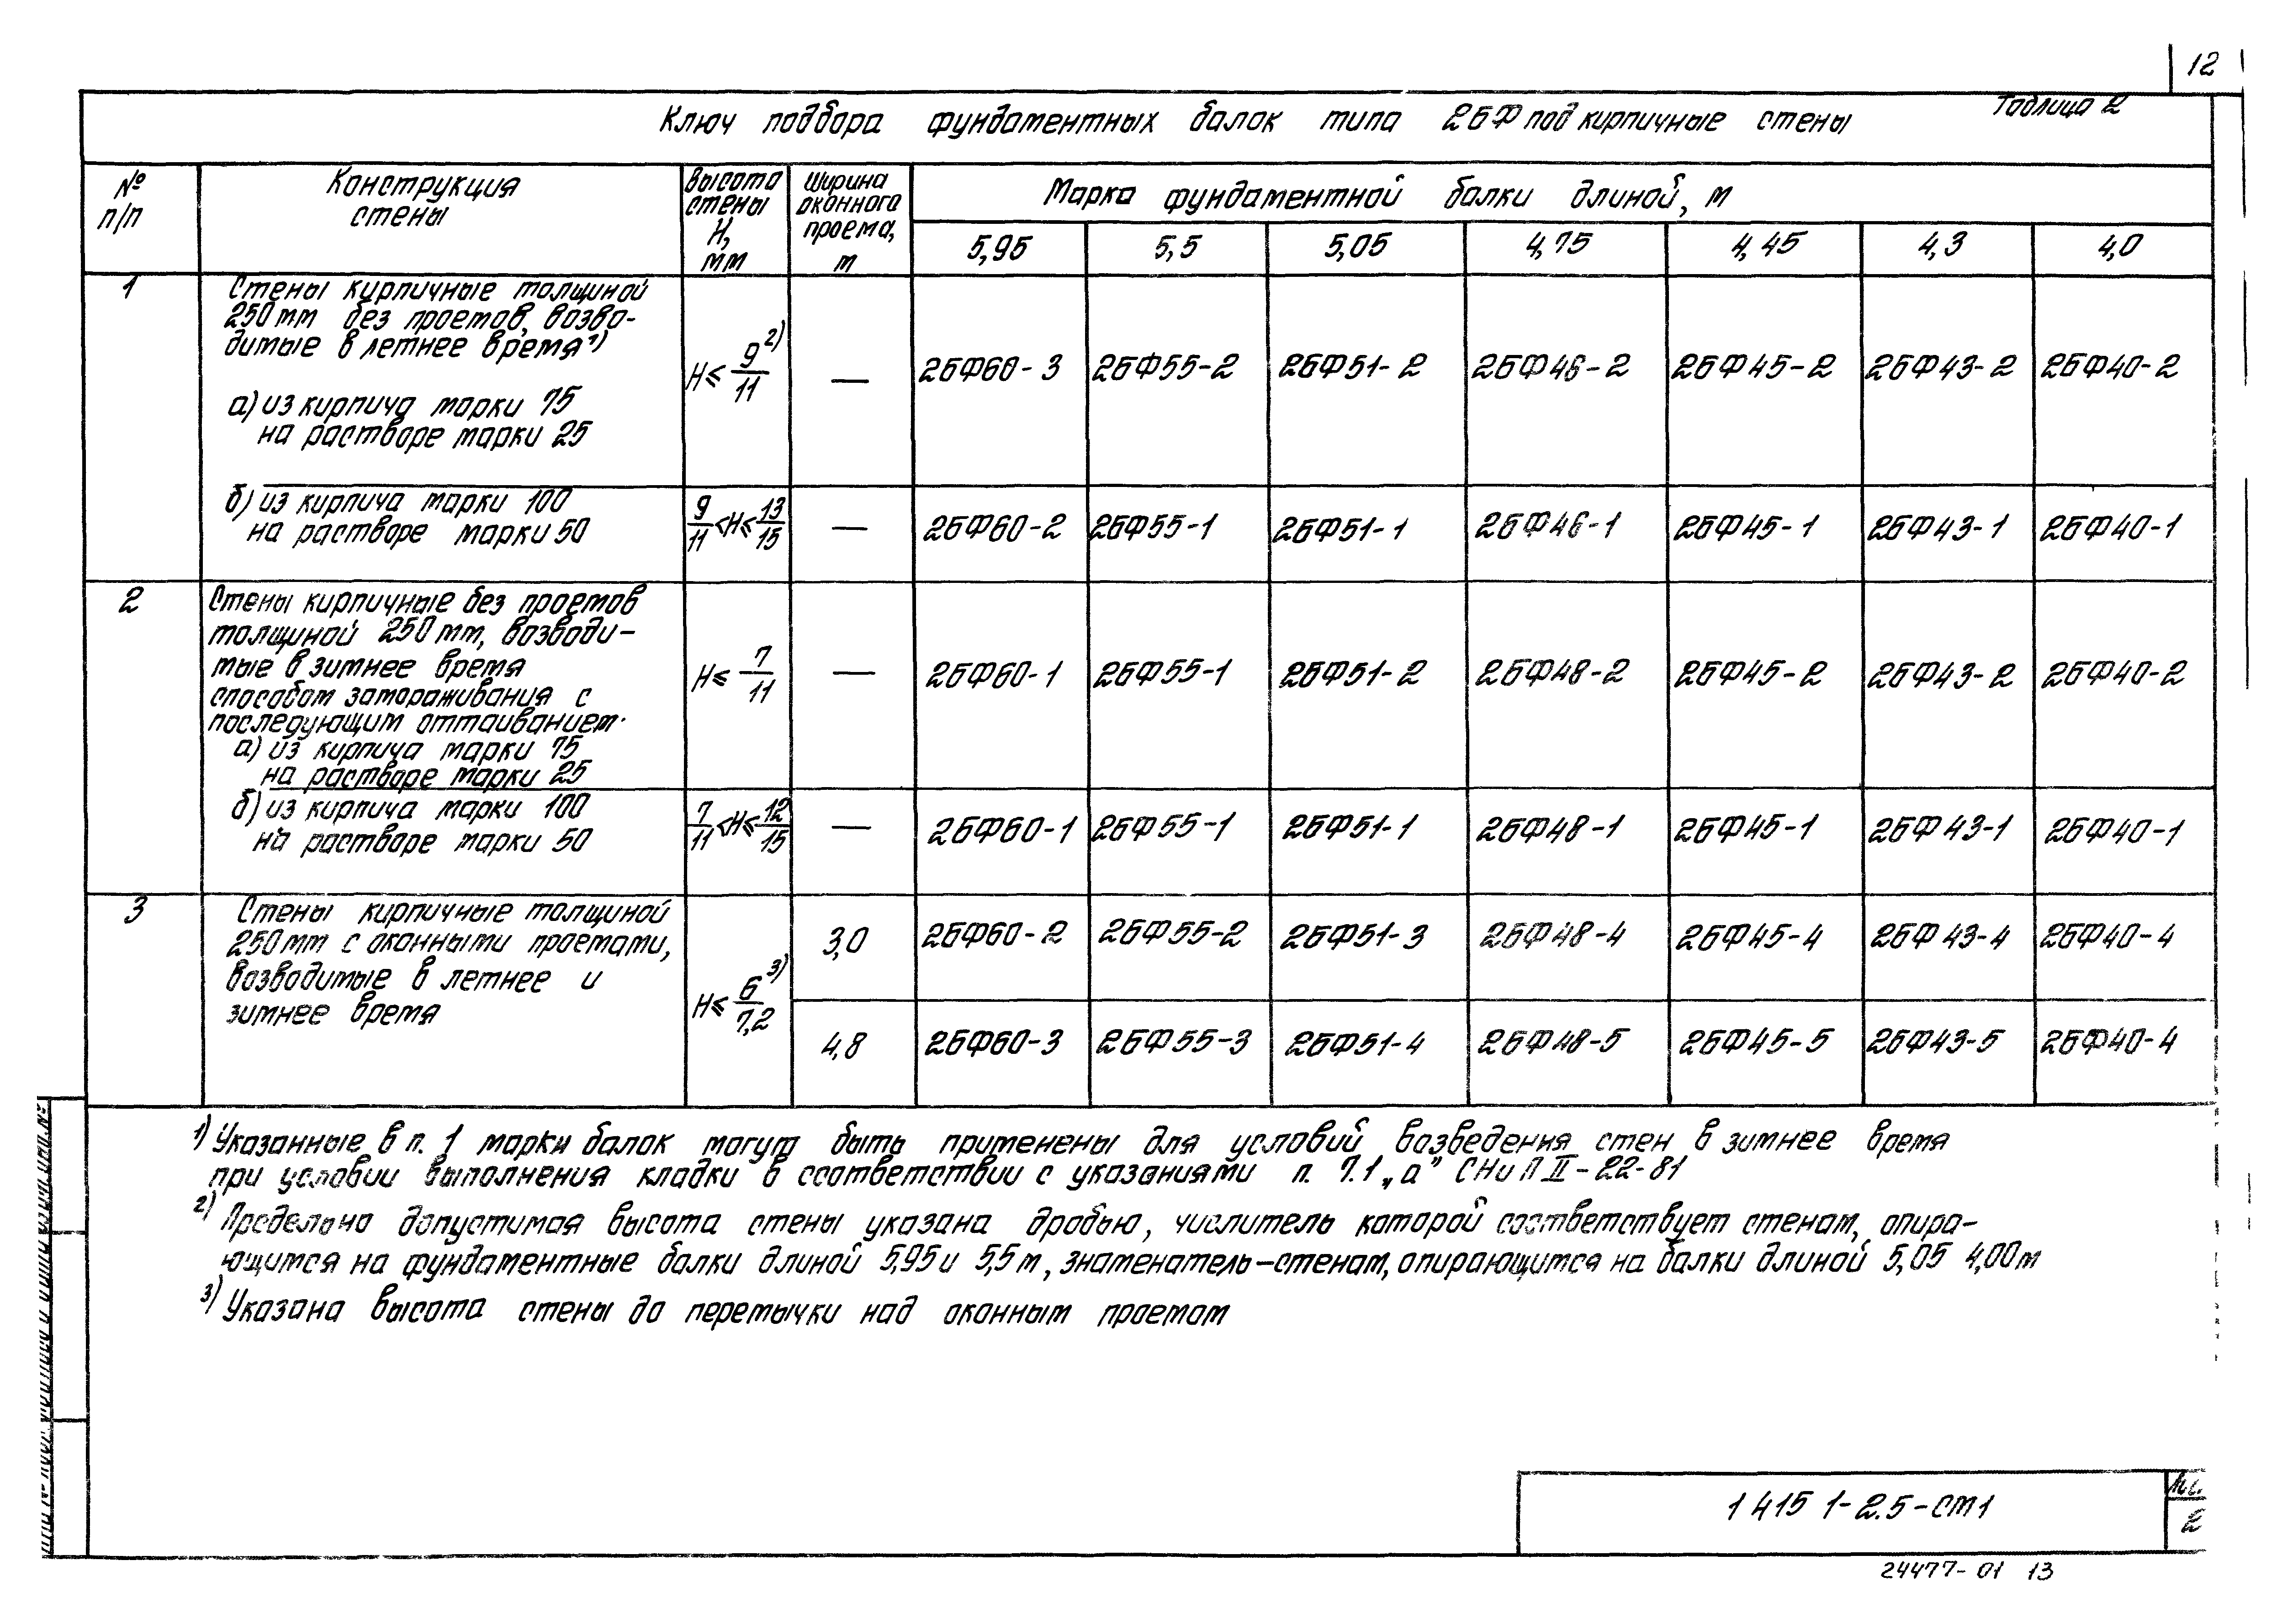 12
Таблица 2
Ключ подбора фундаментных балок типа 2БФ под кирпичные стены
№ п/п
Конструкция стены
Высота стены Н, мм
Ширина оконного проема, м
Марка фундаментной балки длиной, м
5,95 5,5 5,05 4,75 4,45 4,3 4,0
1
Стены кирпичные толщиной
250 мм без проемов, возво-
димые в летнее время 1)
а) из кирпича марки 75
на растворе марки 25
Н ≤ 9/11 2)
—
2БФ60-3 2БФ55-2 2БФ51-2 2БФ48-2 2БФ45-2 2БФ43-2 2БФ40-2
б) из кирпича марки 100
на растворе марки 50
9/11 < Н ≤ 13/15
—
2БФ60-2 2БФ55-1 2БФ51-1 2БФ48-1 2БФ45-1 2БФ43-1 2БФ40-1
2
Стены кирпичные без проемов
толщиной 250 мм, возводи-
мые в зимнее время
способом замораживания с
последующим оттаиванием.
а) из кирпича марки 75
на растворе марки 25
Н ≤ 7/11
—
2БФ60-1 2БФ55-1 2БФ51-2 2БФ48-2 2БФ45-2 2БФ43-2 2БФ40-2
б) из кирпича марки 100
на растворе марки 50
7/11 < Н ≤ 12/15
—
2БФ60-1 2БФ55-1 2БФ51-1 2БФ48-1 2БФ45-1 2БФ43-1 2БФ40-1
3
Стены кирпичные толщиной
250 мм с оконными проемами,
возводимые в летнее и
зимнее время
Н ≤ 6/7,2 3)
3,0
2БФ60-2 2БФ55-2 2БФ51-3 2БФ48-4 2БФ45-4 2БФ43-4 2БФ40-4
4,8
2БФ60-3 2БФ55-3 2БФ51-4 2БФ48-5 2БФ45-5 2БФ43-5 2БФ40-4
1) Указанные в п. 1 марки балок могут быть применены для условий возведения стен в зимнее время
при условии выполнения кладки в соответствии с указаниями п. 7.1 „а" СНиП II-22-81
2) Предельно допустимая высота стены указана дробью, числитель которой соответствует стенам, опира-
ющимся на фундаментные балки длиной 5,95 и 5,5 м, знаменатель-стенам, опирающимся на балки длиной 5,05 4,00 м
3) Указана высота стены до перемычки над оконным проемом
1 415 1-2.5-СМ1
2
24477-01 13